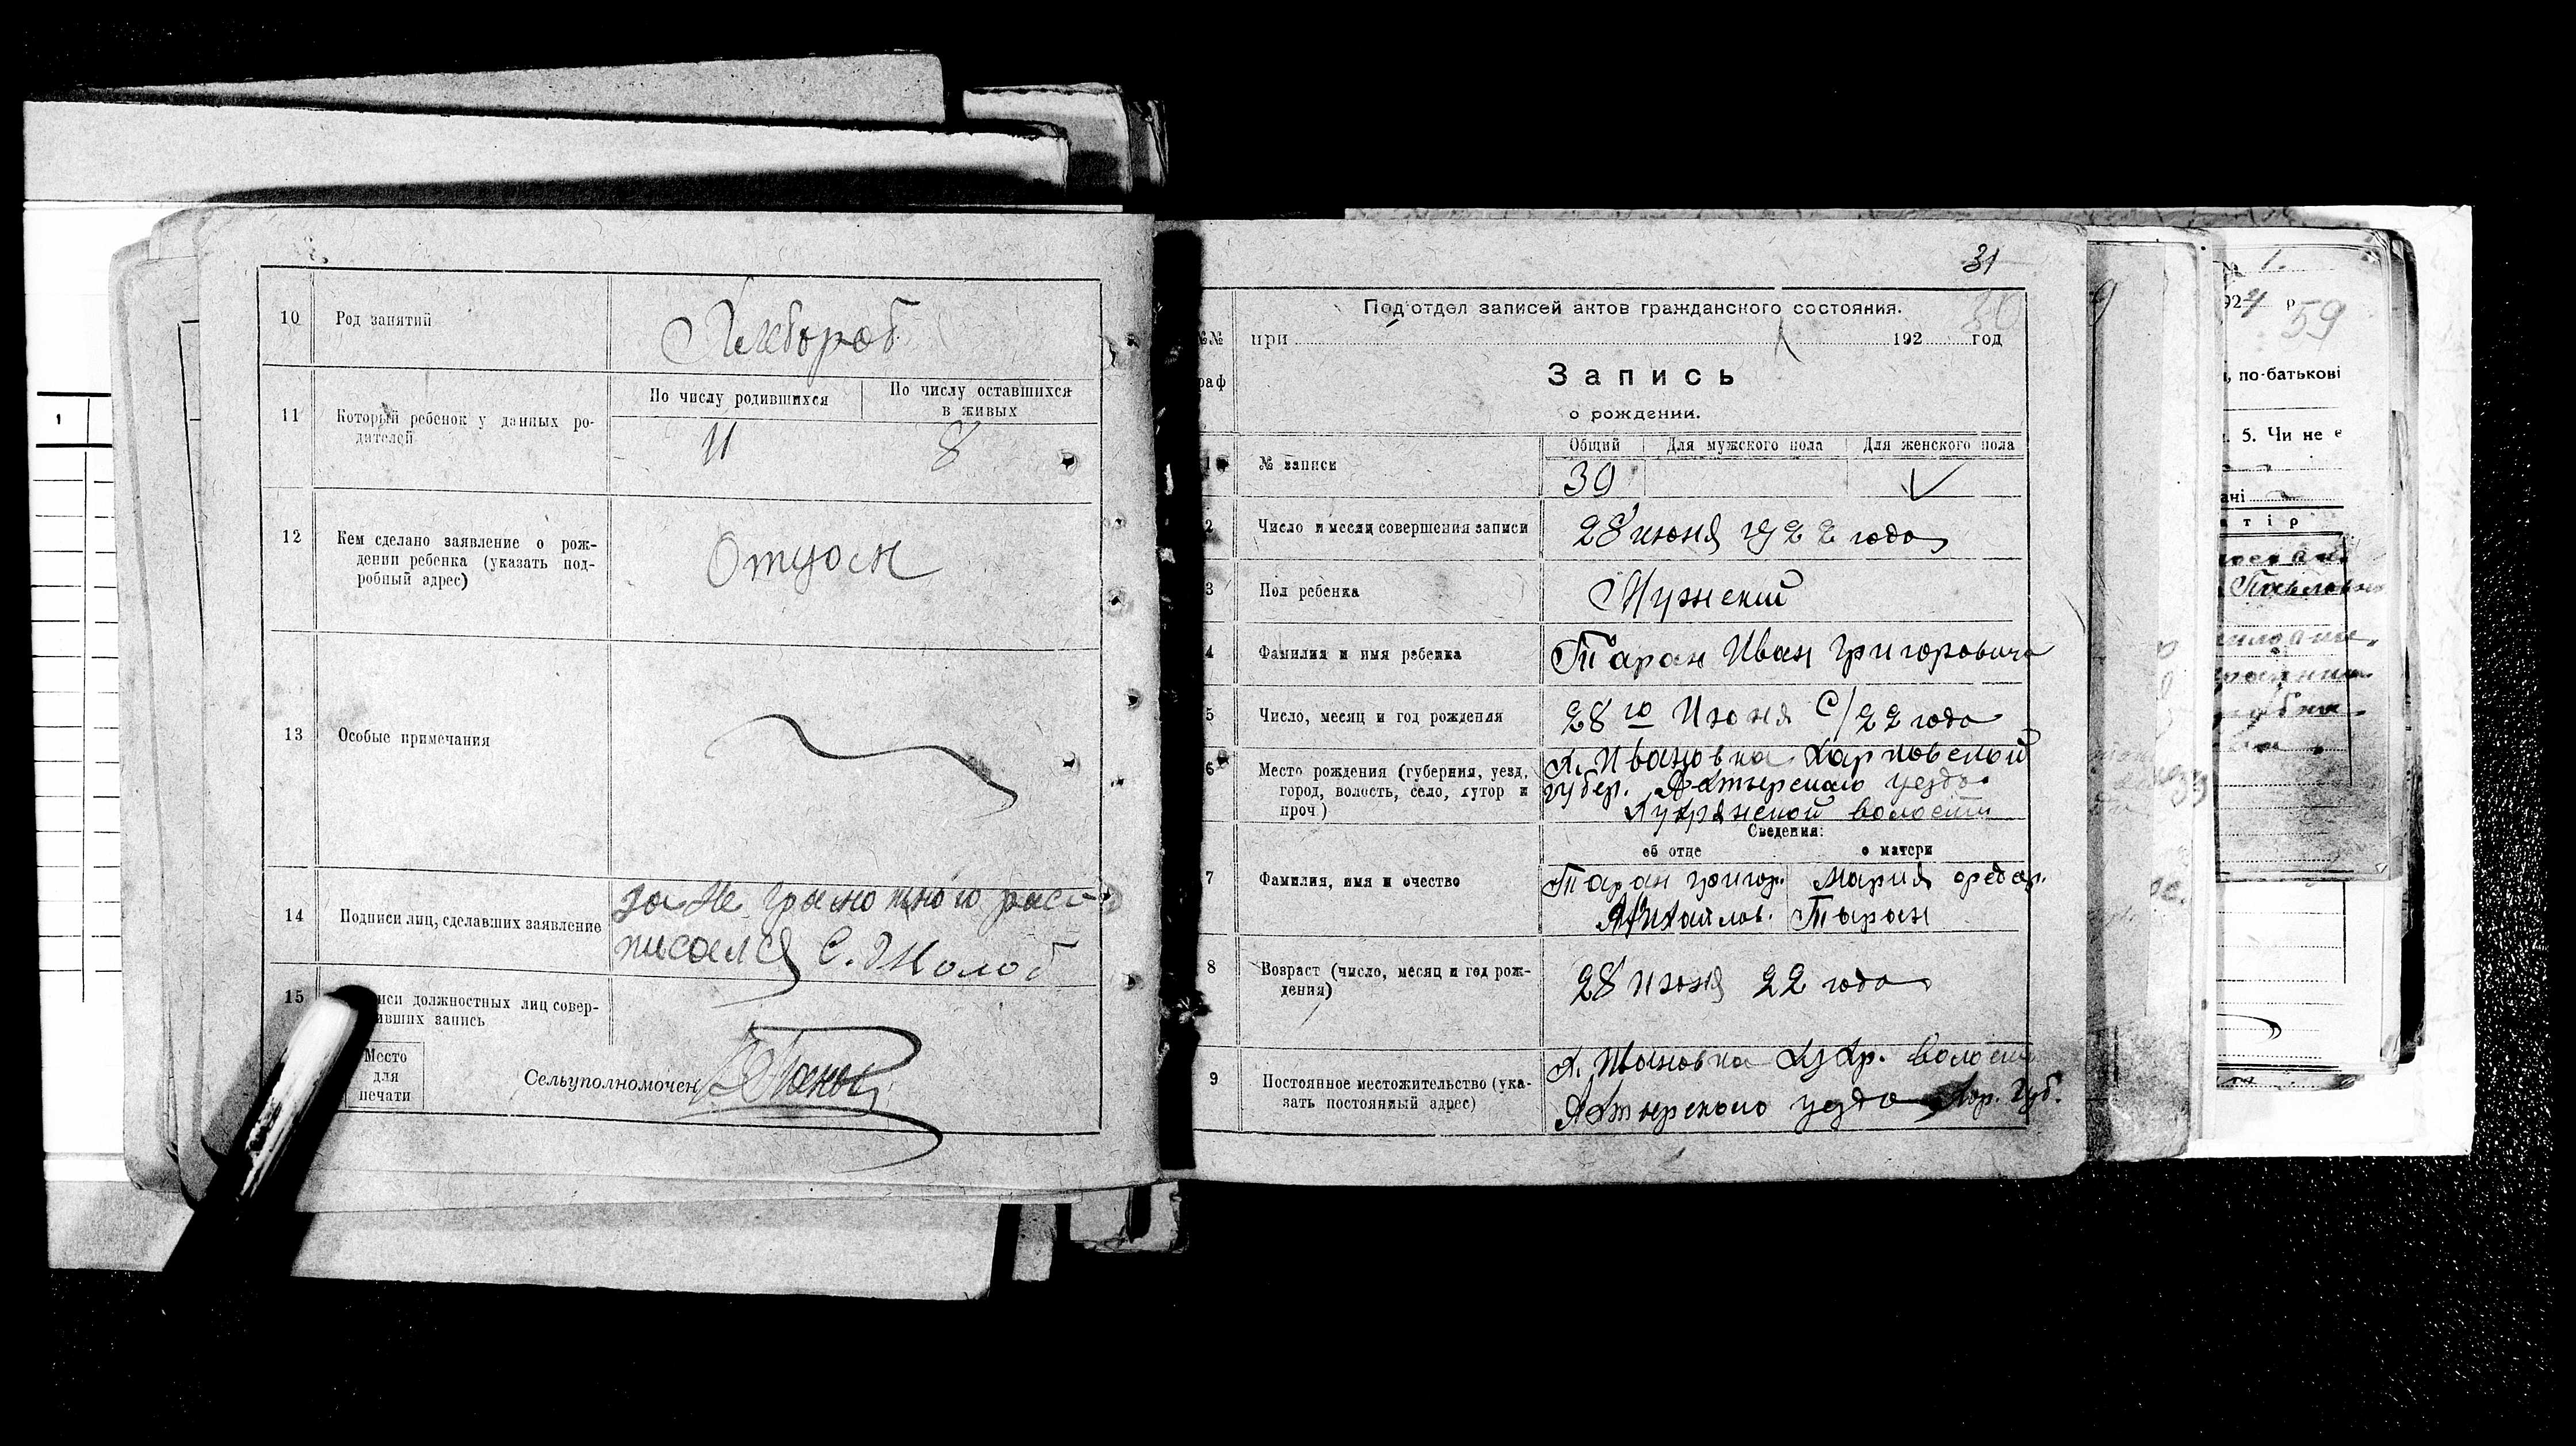 10 Род занятий Хлебороб
11 Который ребенок у данных ро-
дителей
По числу родившихся
По числу оставшихся
в живых
11 8
12 Кем сделано заявление о рож-
дении ребенка (указать под-
робный адрес)
Отцом
13 Особые примечания
14 Подписи лиц, сделавших заявление
за не грамотного рас-
писался С. Жолоб
15 иси должностных лиц совер-
ивших запись
Место
для
печати
Сельуполномочен
31
30
Под'отдел записей актов гражданского состояния.
№№
раф
при 192 год
Запись
о рождении.
Общий Для мужского пола Для женского пола
1 № записи 30 V
2 Число и месяц совершения записи 28 июня 1922 года
3 Пол ребенка Мужский
4 Фамилия и имя ребенка Таран Иван Григорович
5 Число, месяц и год рождения 28го Июня с/22 года
6 Место рождения (губерния, уезд,
город, волость, село, хутор и
проч)
х. Ивановка Харковской
губер. Ахтырскаго уезда
волости
Сведения:
об отце о матери
7 Фамилия, имя и очество
Таран Григор. Мария Федор.
Михайлов. Таран
8 Возраст (число, месяц и год рож-
дения)
28 июня 22 года
9 Постоянное местожительство (ука-
зать постоянный адрес)
х. Ивановка волости
Ахтырскаго уезда Хар. Губ.
9
1.
924 р
59
, по-батькові
5. Чи не є
ані
атір
Павловна
1